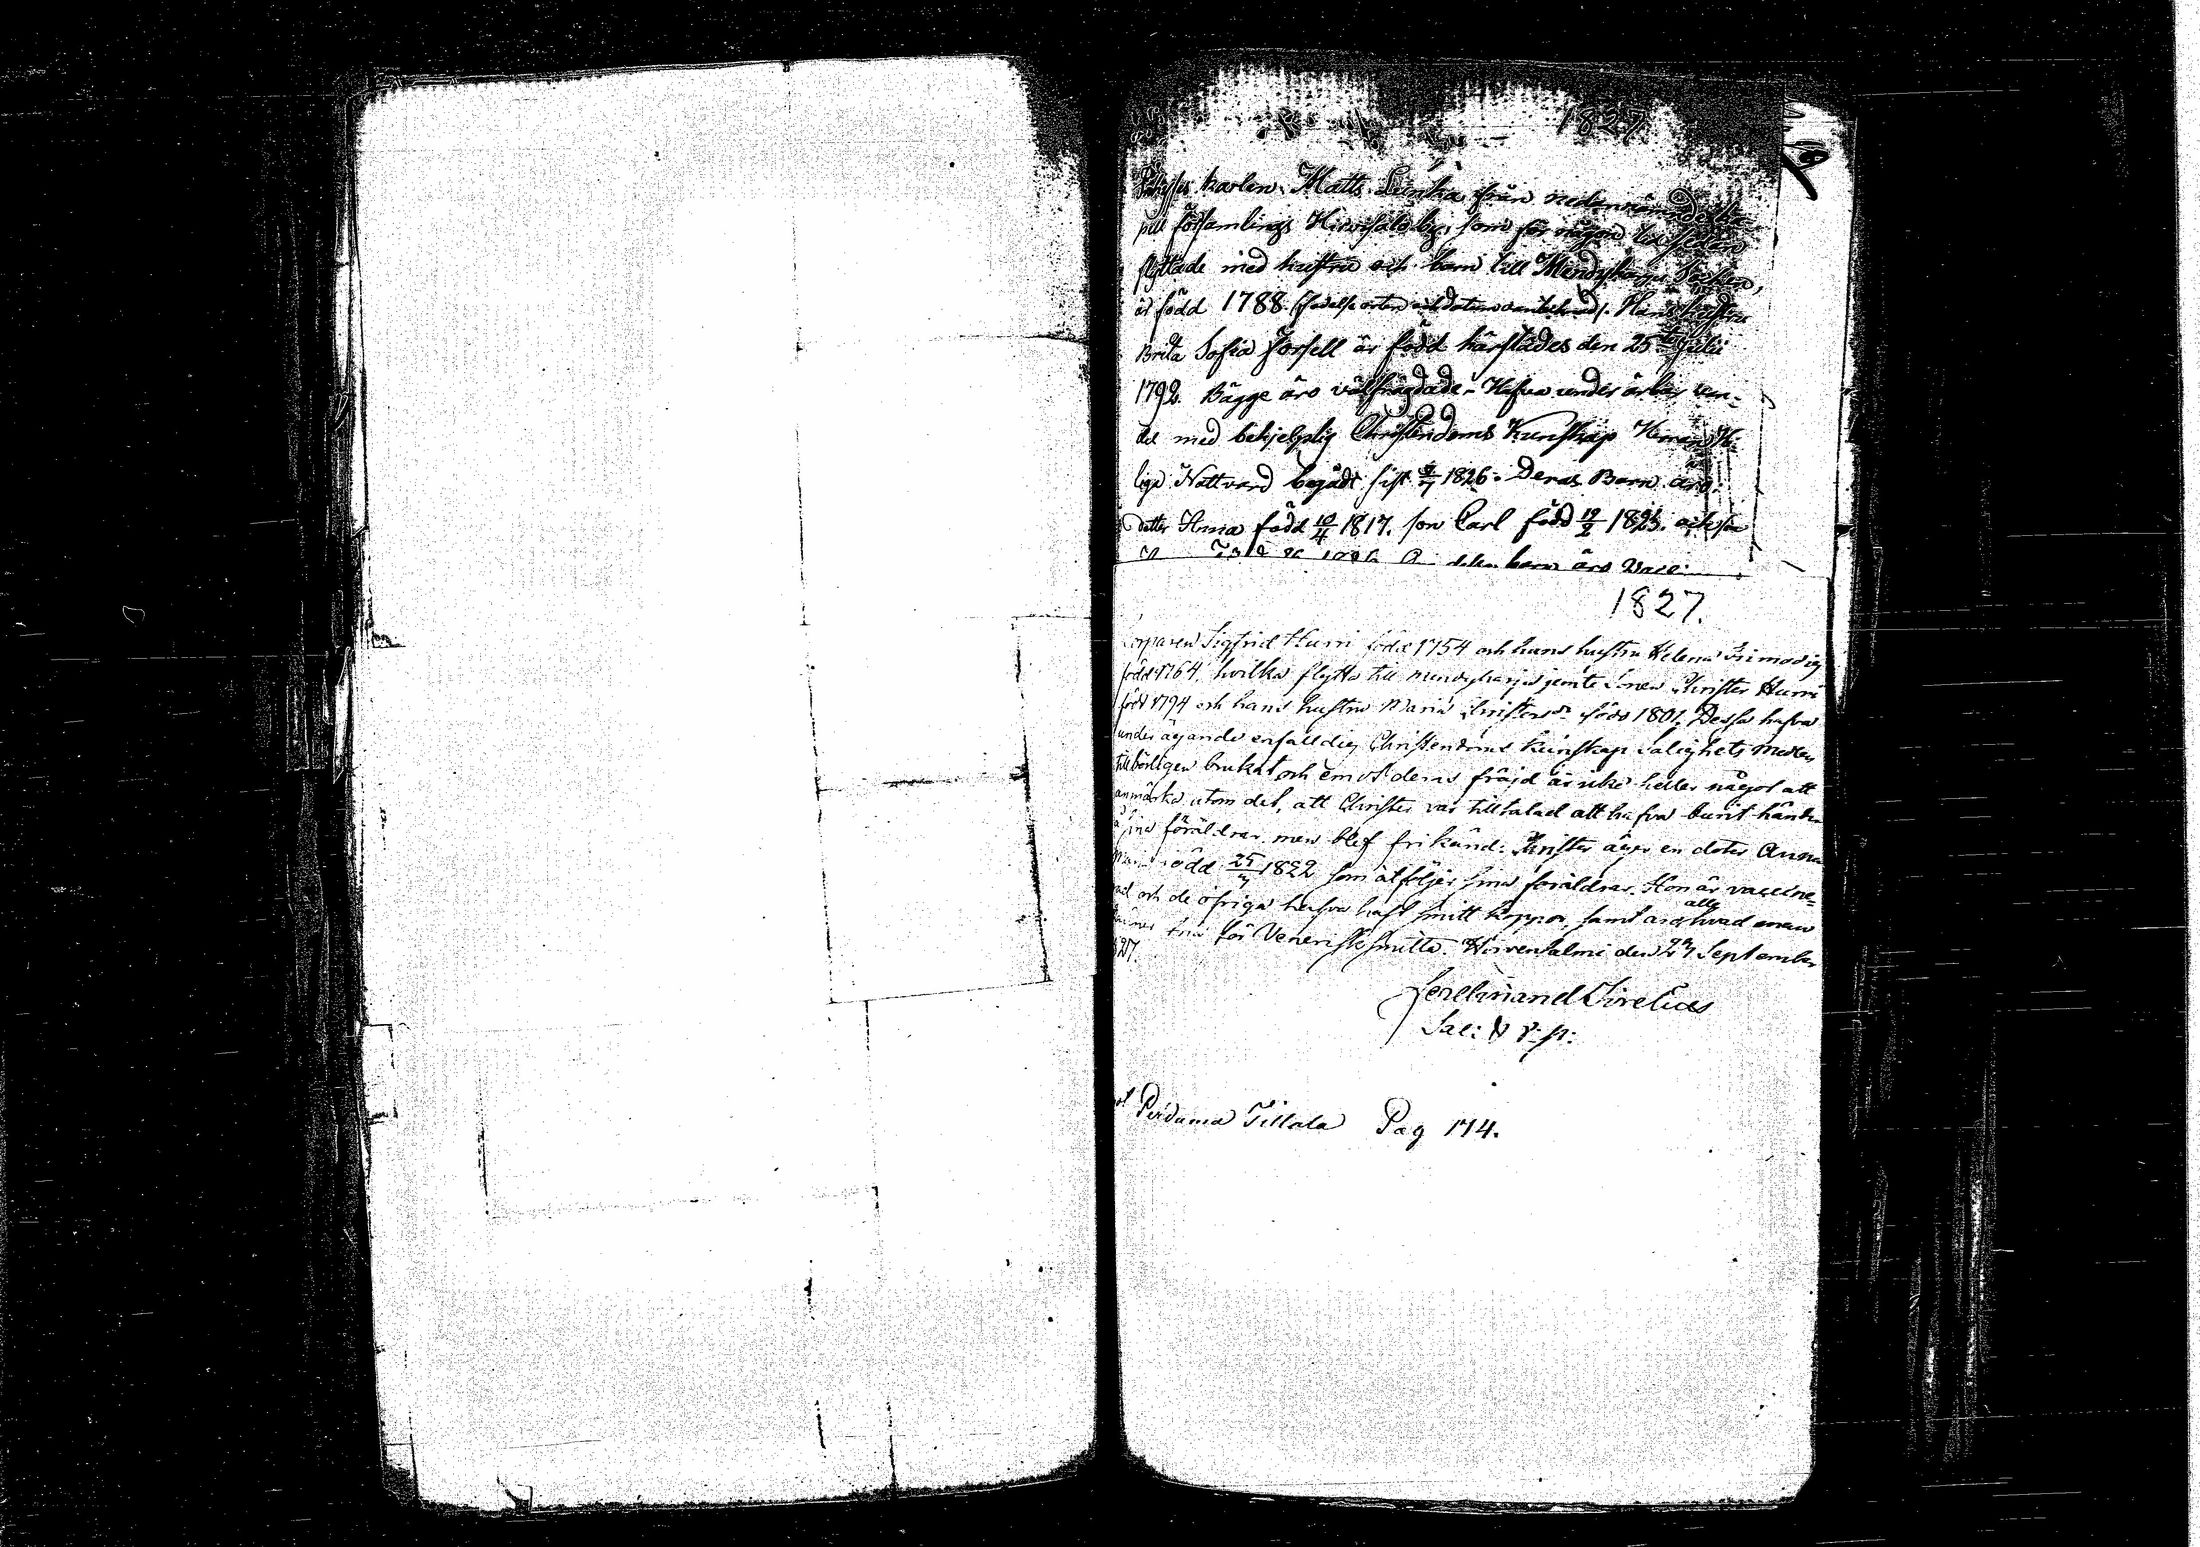 1827
karlen Matts Leinka från nedannämnde
pell församlings Hirvisalo by, som för någon tid sedan
flyttade med hustru och barn till Mändyharju Socken,
är född 1788. Hans hustru
Brita Sofia Forsell är född härstädes den 25 Julii
1792. Bägge äro välfrägdade. Hafva under
del med behjelplig Christendoms Kunskap Herrans H:
liga Nattvard begådt sist 1826. Deras Barn äro:
dotter Anna född 10/4 1817. son Carl född 12/2 1825. och
barn äro Vacci
1827.
Sigfrid Hurri född 1754 och hans hustru Helena Frimodig
född 1764, hvilka flytta till Mändyharju jemte Sonen Christer Hurri
född 1794 och hans hustru Maria Christersdr född 1801. Dessa hafva
under ägande enfalldig Christendoms kunskap Salighets medlen
tillbörligen brukat och emot deras fräjd är icke heller något att
anmärka utom det, att Christer var tilltalad att hafva burit händer
å sina föräldrar men blef frikänd. Christer äger en doter Anna
född 25/7 1822 som åtföljer sina föräldrar. Hon är vaccine-
rad och de öfriga hafva haft smitt koppor, samt äro alla hvad man
känner fria för Venerisk smitta. Hirvensalmi den 27 September
1827.
Ferdinand Sirelius
Sac: N. v: p:
Pag 174.